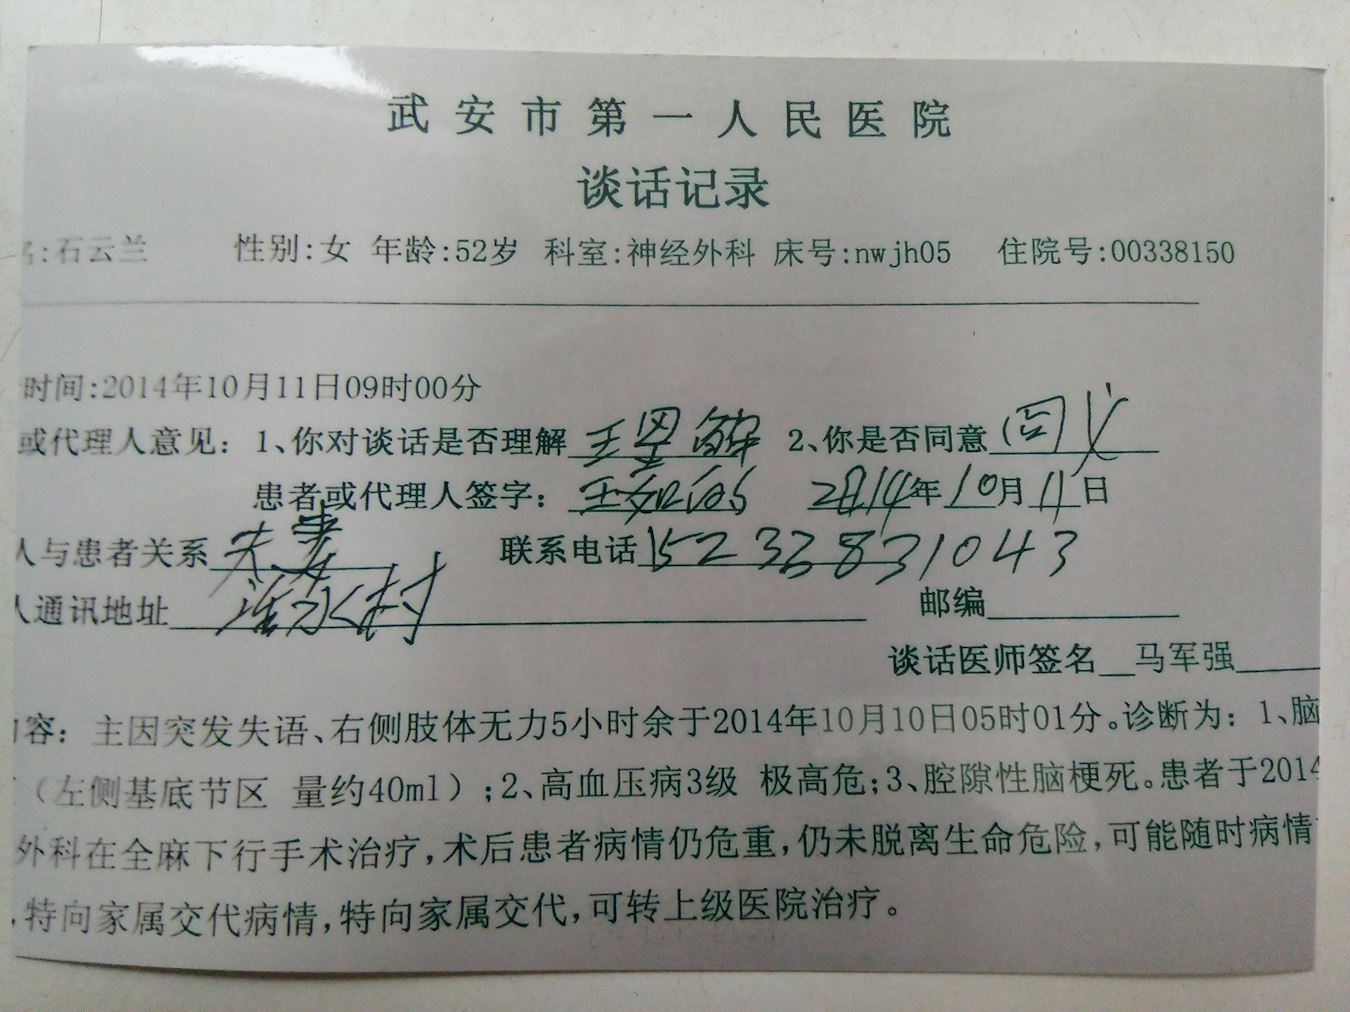 武安市第一人民医院
谈话记录
名:石云兰 性别:女 年龄:52岁 科室:神经外科 床号:nwjh05 住院号:00338150
时间:2014年10月11日09时00分
或代理人意见：1、你对谈话是否理解 2、你是否同意 同意
患者或代理人签字： 2014年10月11日
人与患者关系 夫妻 联系电话15233831043
人通讯地址 村 邮编
谈话医师签名 马军强
内容：主因突发失语、右侧肢体无力5小时余于2014年10月10日05时01分。诊断为：1、脑
（左侧基底节区 量约40ml）;2、高血压病3级 极高危;3、腔隙性脑梗死。患者于2014
外科在全麻下行手术治疗,术后患者病情仍危重,仍未脱离生命危险,可能随时病情
,特向家属交代病情,特向家属交代,可转上级医院治疗。